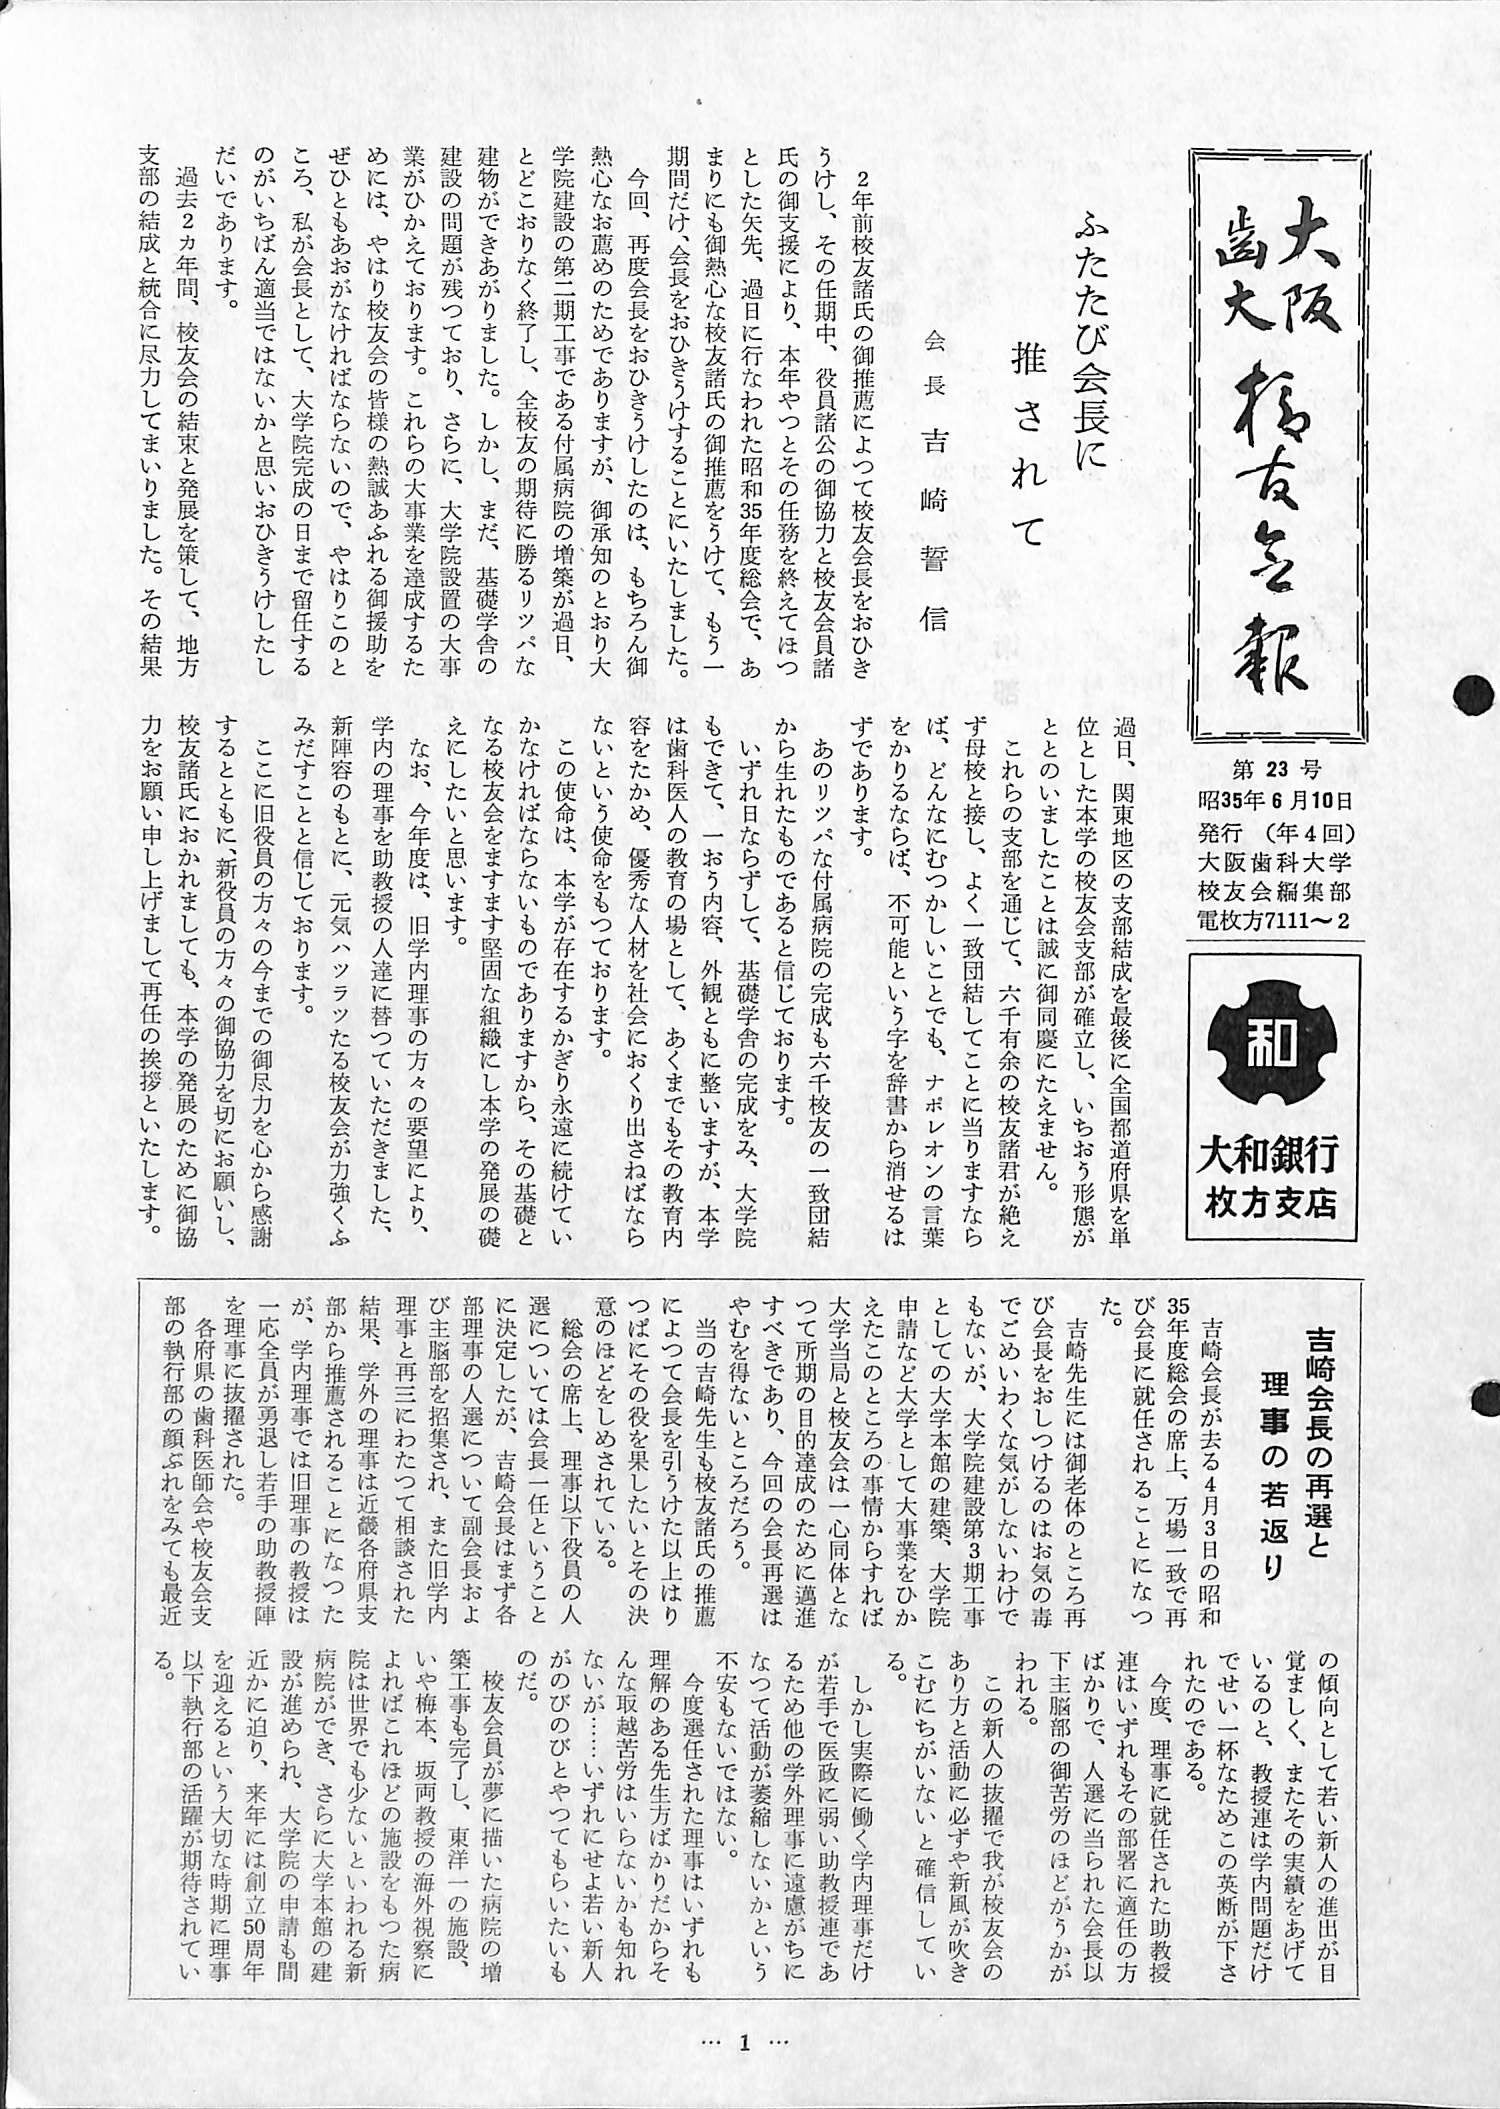 大阪
歯大
校友会報
第 23 号
昭35年6月10日
発行 (年4回)
大阪歯科大学
校友会編集部
電枚方7111〜2
和
大和銀行
枚方支店
ふたたび会長に
推されて
会長 吉崎誓信
2年前校友諸氏の御推薦によつて校友会長をおひき
うけし、その任期中、役員諸公の御協力と校友会員諸
氏の御支援により、本年やつとその任務を終えてほつ
とした矢先、過日に行なわれた昭和35年度総会で、あ
まりにも御熱心な校友諸氏の御推薦をうけて、もう一
期間だけ、会長をおひきうけすることにいたしました。
今回、再度会長をおひきうけしたのは、もちろん御
熱心なお薦めのためでありますが、御承知のとおり大
学院建設の第二期工事である付属病院の増築が過日、
とどこおりなく終了し、全校友の期待に勝るリツパな
建物ができあがりました。しかし、まだ、基礎学舎の
建設の問題が残つており、さらに、大学院設置の大事
業がひかえております。これらの大事業を達成するた
めには、やはり校友会の皆様の熱誠あふれる御援助を
ぜひともあおがなければならないので、やはりこのと
ころ、私が会長として、大学院完成の日まで留任する
のがいちばん適当ではないかと思いおひきうけしたし
だいであります。
過去2カ年間、校友会の結束と発展を策して、地方
支部の結成と統合に尽力してまいりました。その結果
過日、関東地区の支部結成を最後に全国都道府県を単
位とした本学の校友会支部が確立し、いちおう形態が
ととのいましたことは誠に御同慶にたえません。
これらの支部を通じて、六千有余の校友諸君が絶え
ず母校と接し、よく一致団結してことに当りますなら
ば、どんなにむつかしいことでも、ナポレオンの言葉
をかりるならば、不可能という字を辞書から消せるは
ずであります。
あのリツパな付属病院の完成も六千校友の一致団結
から生れたものであると信じております。
いずれ日ならずして、基礎学舎の完成をみ、大学院
もできて、一おう内容、外観ともに整いますが、本学
は歯科医人の教育の場として、あくまでもその教育内
容をたかめ、優秀な人材を社会におくり出さねばなら
ないという使命をもつております。
この使命は、本学が存在するかぎり永遠に続けてい
かなければならないものでありますから、その基礎と
なる校友会をますます堅固な組織にし本学の発展の礎
えにしたいと思います。
なお、今年度は、旧学内理事の方々の要望により、
学内の理事を助教授の人達に替つていただきました、
新陣容のもとに、元気ハツラツたる校友会が力強くふ
みだすことと信じております。
ここに旧役員の方々の今までの御尽力を心から感謝
するとともに、新役員の方々の御協力を切にお願いし、
校友諸氏におかれましても、本学の発展のために御協
力をお願い申し上げまして再任の挨拶といたします。
吉崎会長の再選と
理事の若返り
吉崎会長が去る4月3日の昭和
35年度総会の席上、万場一致で再
び会長に就任されることになつ
た。
吉崎先生には御老体のところ再
び会長をおしつけるのはお気の毒
でごめいわくな気がしないわけで
もないが、大学院建設第3期工事
としての大学本館の建築、大学院
申請など大学として大事業をひか
えたこのところの事情からすれば
大学当局と校友会は一心同体とな
つて所期の目的達成のために邁進
すべきであり、今回の会長再選は
やむを得ないところだろう。
当の吉崎先生も校友諸氏の推薦
によつて会長を引うけた以上はり
つぱにその役を果したいとその決
意のほどをしめされている。
総会の席上、理事以下役員の人
選については会長一任ということ
に決定したが、吉崎会長はまず各
部理事の人選について副会長およ
び主脳部を招集され、また旧学内
理事と再三にわたつて相談された
結果、学外の理事は近畿各府県支
部から推薦されることになつた
が、学内理事では旧理事の教授は
一応全員が勇退し若手の助教授陣
を理事に抜擢された。
各府県の歯科医師会や校友会支
部の執行部の顔ぶれをみても最近
の傾向として若い新人の進出が目
覚ましく、またその実績をあげて
いるのと、教授連は学内問題だけ
でせい一杯なためこの英断が下さ
れたのである。
今度、理事に就任された助教授
連はいずれもその部署に適任の方
ばかりで、人選に当られた会長以
下主脳部の御苦労のほどがうかが
われる。
この新人の抜擢で我が校友会の
あり方と活動に必ずや新風が吹き
こむにちがいないと確信してい
る。
しかし実際に働く学内理事だけ
が若手で医政に弱い助教授連であ
るため他の学外理事に遠慮がちに
なつて活動が萎縮しないかという
不安もないではない。
今度選任された理事はいずれも
理解のある先生方ばかりだからそ
んな取越苦労はいらないかも知れ
ないが……いずれにせよ若い新人
がのびのびとやつてもらいたいも
のだ。
校友会員が夢に描いた病院の増
築工事も完了し、東洋一の施設、
いや梅本、坂両教授の海外視察に
よればこれほどの施設をもつた病
院は世界でも少ないといわれる新
病院ができ、さらに大学本館の建
設が進められ、大学院の申請も間
近かに迫り、来年には創立50周年
を迎えるという大切な時期に理事
以下執行部の活躍が期待されてい
る。
… 1 …